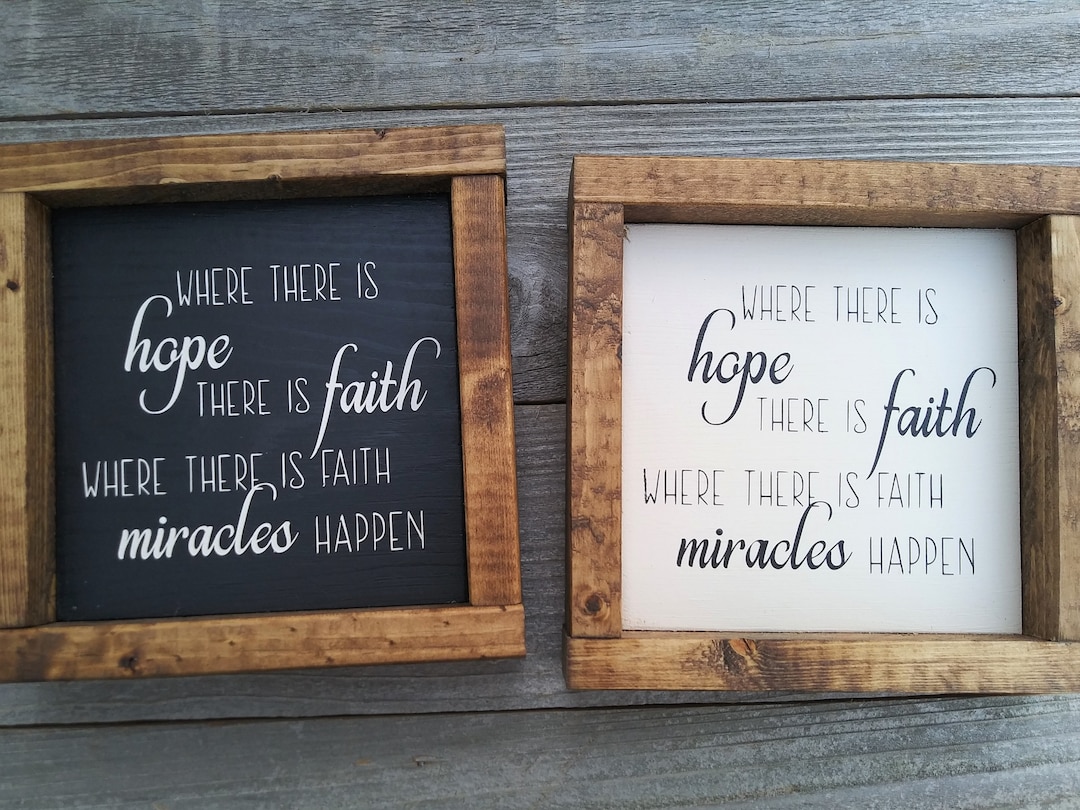 WHERE THERE IS
hope
THERE IS faith
WHERE THERE IS FAITH
miracles HAPPEN
WHERE THERE IS
hope
THERE IS faith
WHERE THERE IS FAITH
miracles HAPPEN